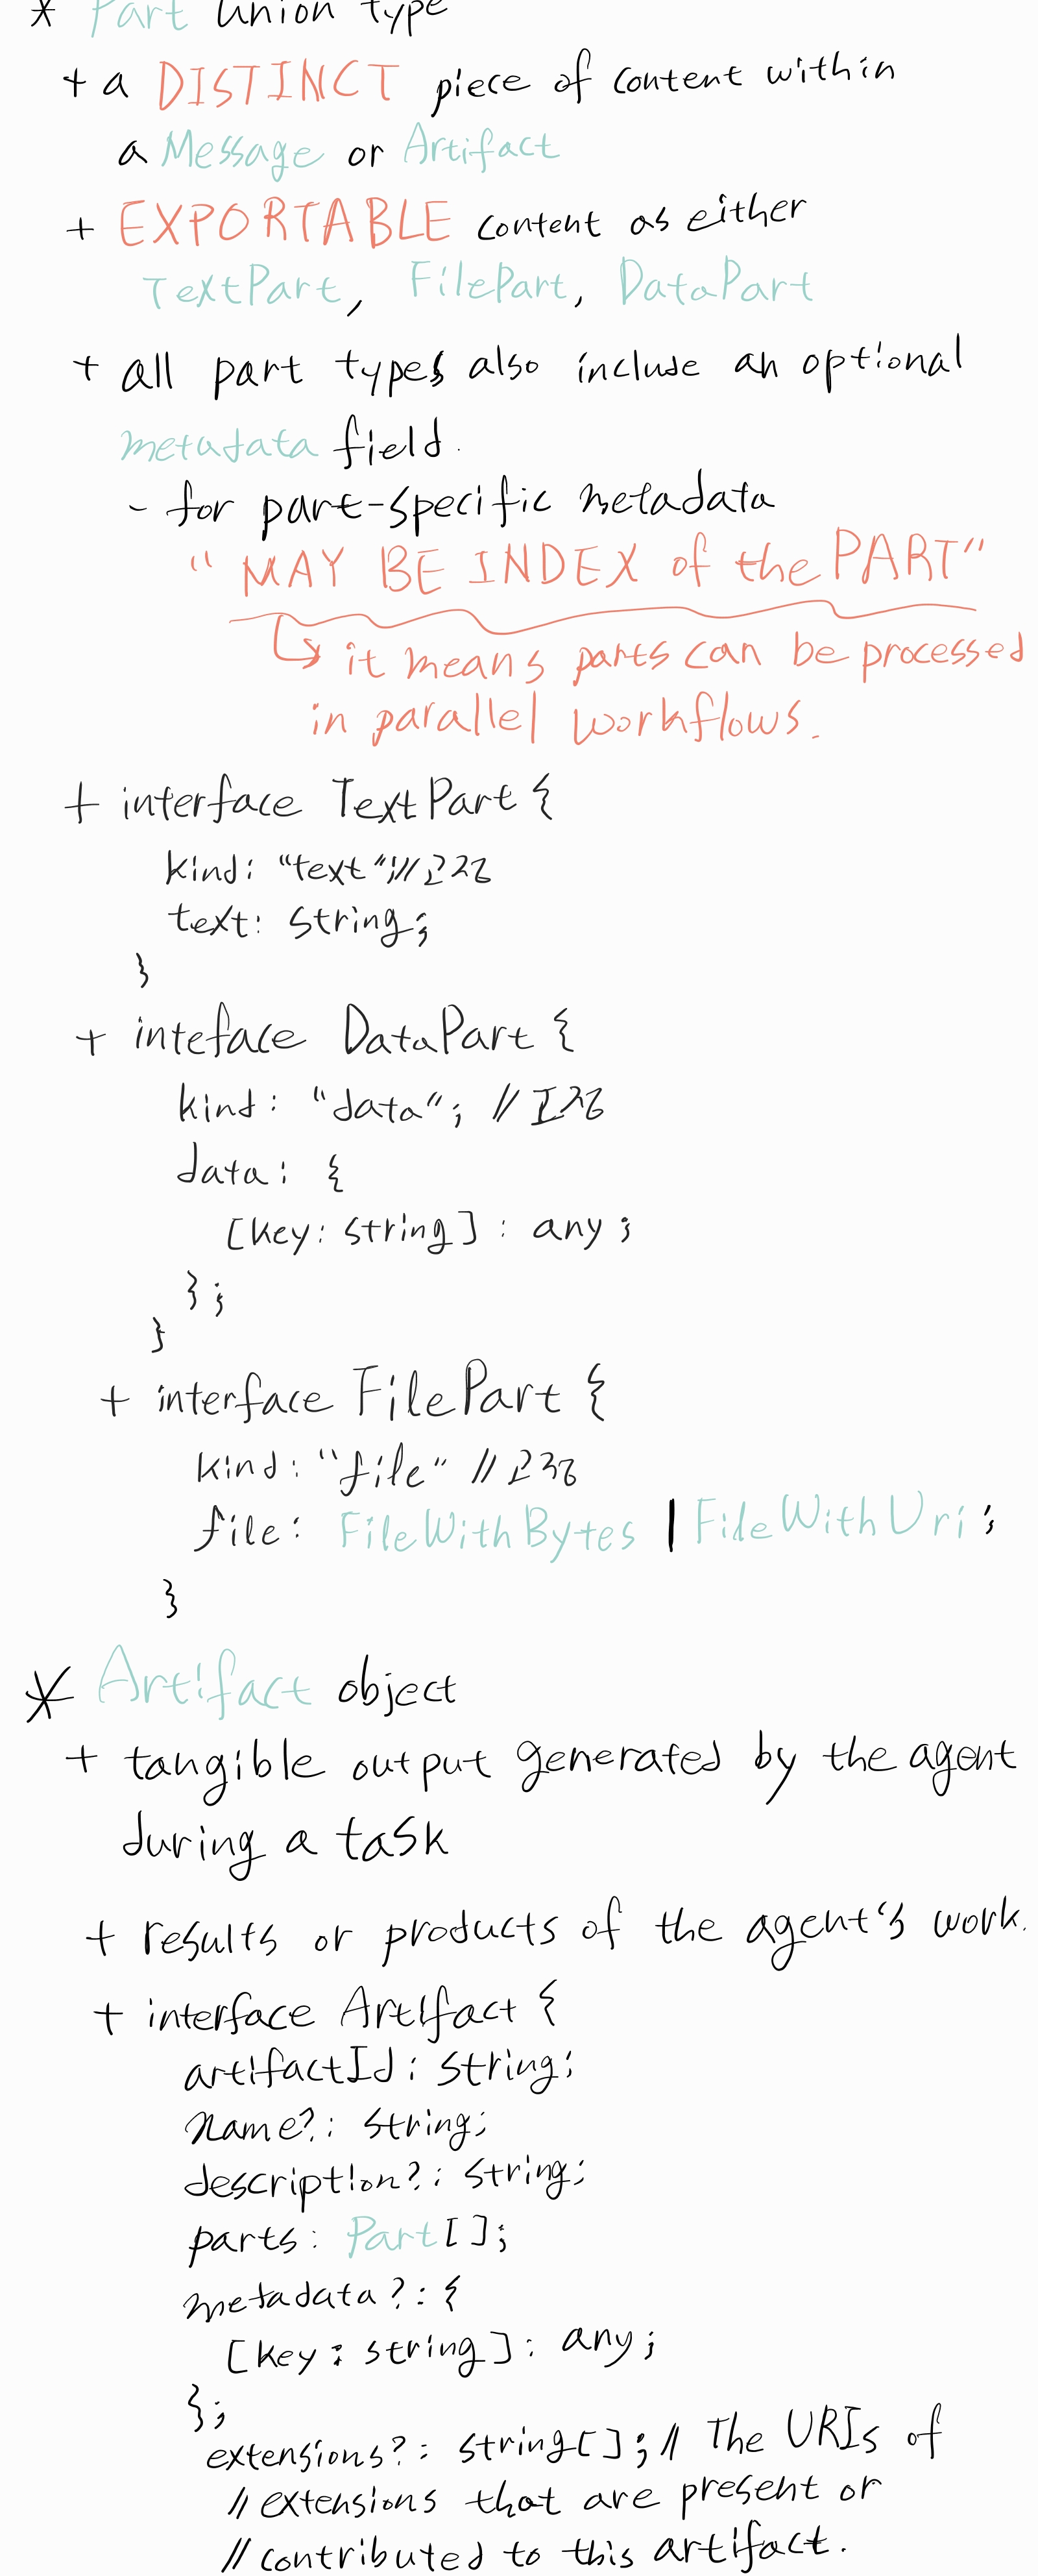 * Part union type
+ a DISTINCT piece of content within
a Message or Artifact
+ EXPORTABLE content as either
TextPart, FilePart, DataPart
+ all part types also include an optional
metadata field.
- for part-specific metadata
"MAY BE INDEX of the PART"
↳ it means parts can be processed
in parallel workflows.
+ interface TextPart {
kind: "text"; // 고정
text: string;
}
+ inteface DataPart {
kind: "data"; // 고정
data: {
[key: string] : any;
};
}
+ interface FilePart {
kind: "file" // 고정
file: FileWithBytes | FileWithUri;
}
* Artifact object
+ tangible output generated by the agent
during a task
+ results or products of the agent's work.
+ interface Artifact {
artifactId: string;
name?: string;
description?: string;
parts: Part[];
metadata?: {
[key: string]: any;
};
extensions?: string[]; // The URIs of
// extensions that are present or
// contributed to this artifact.